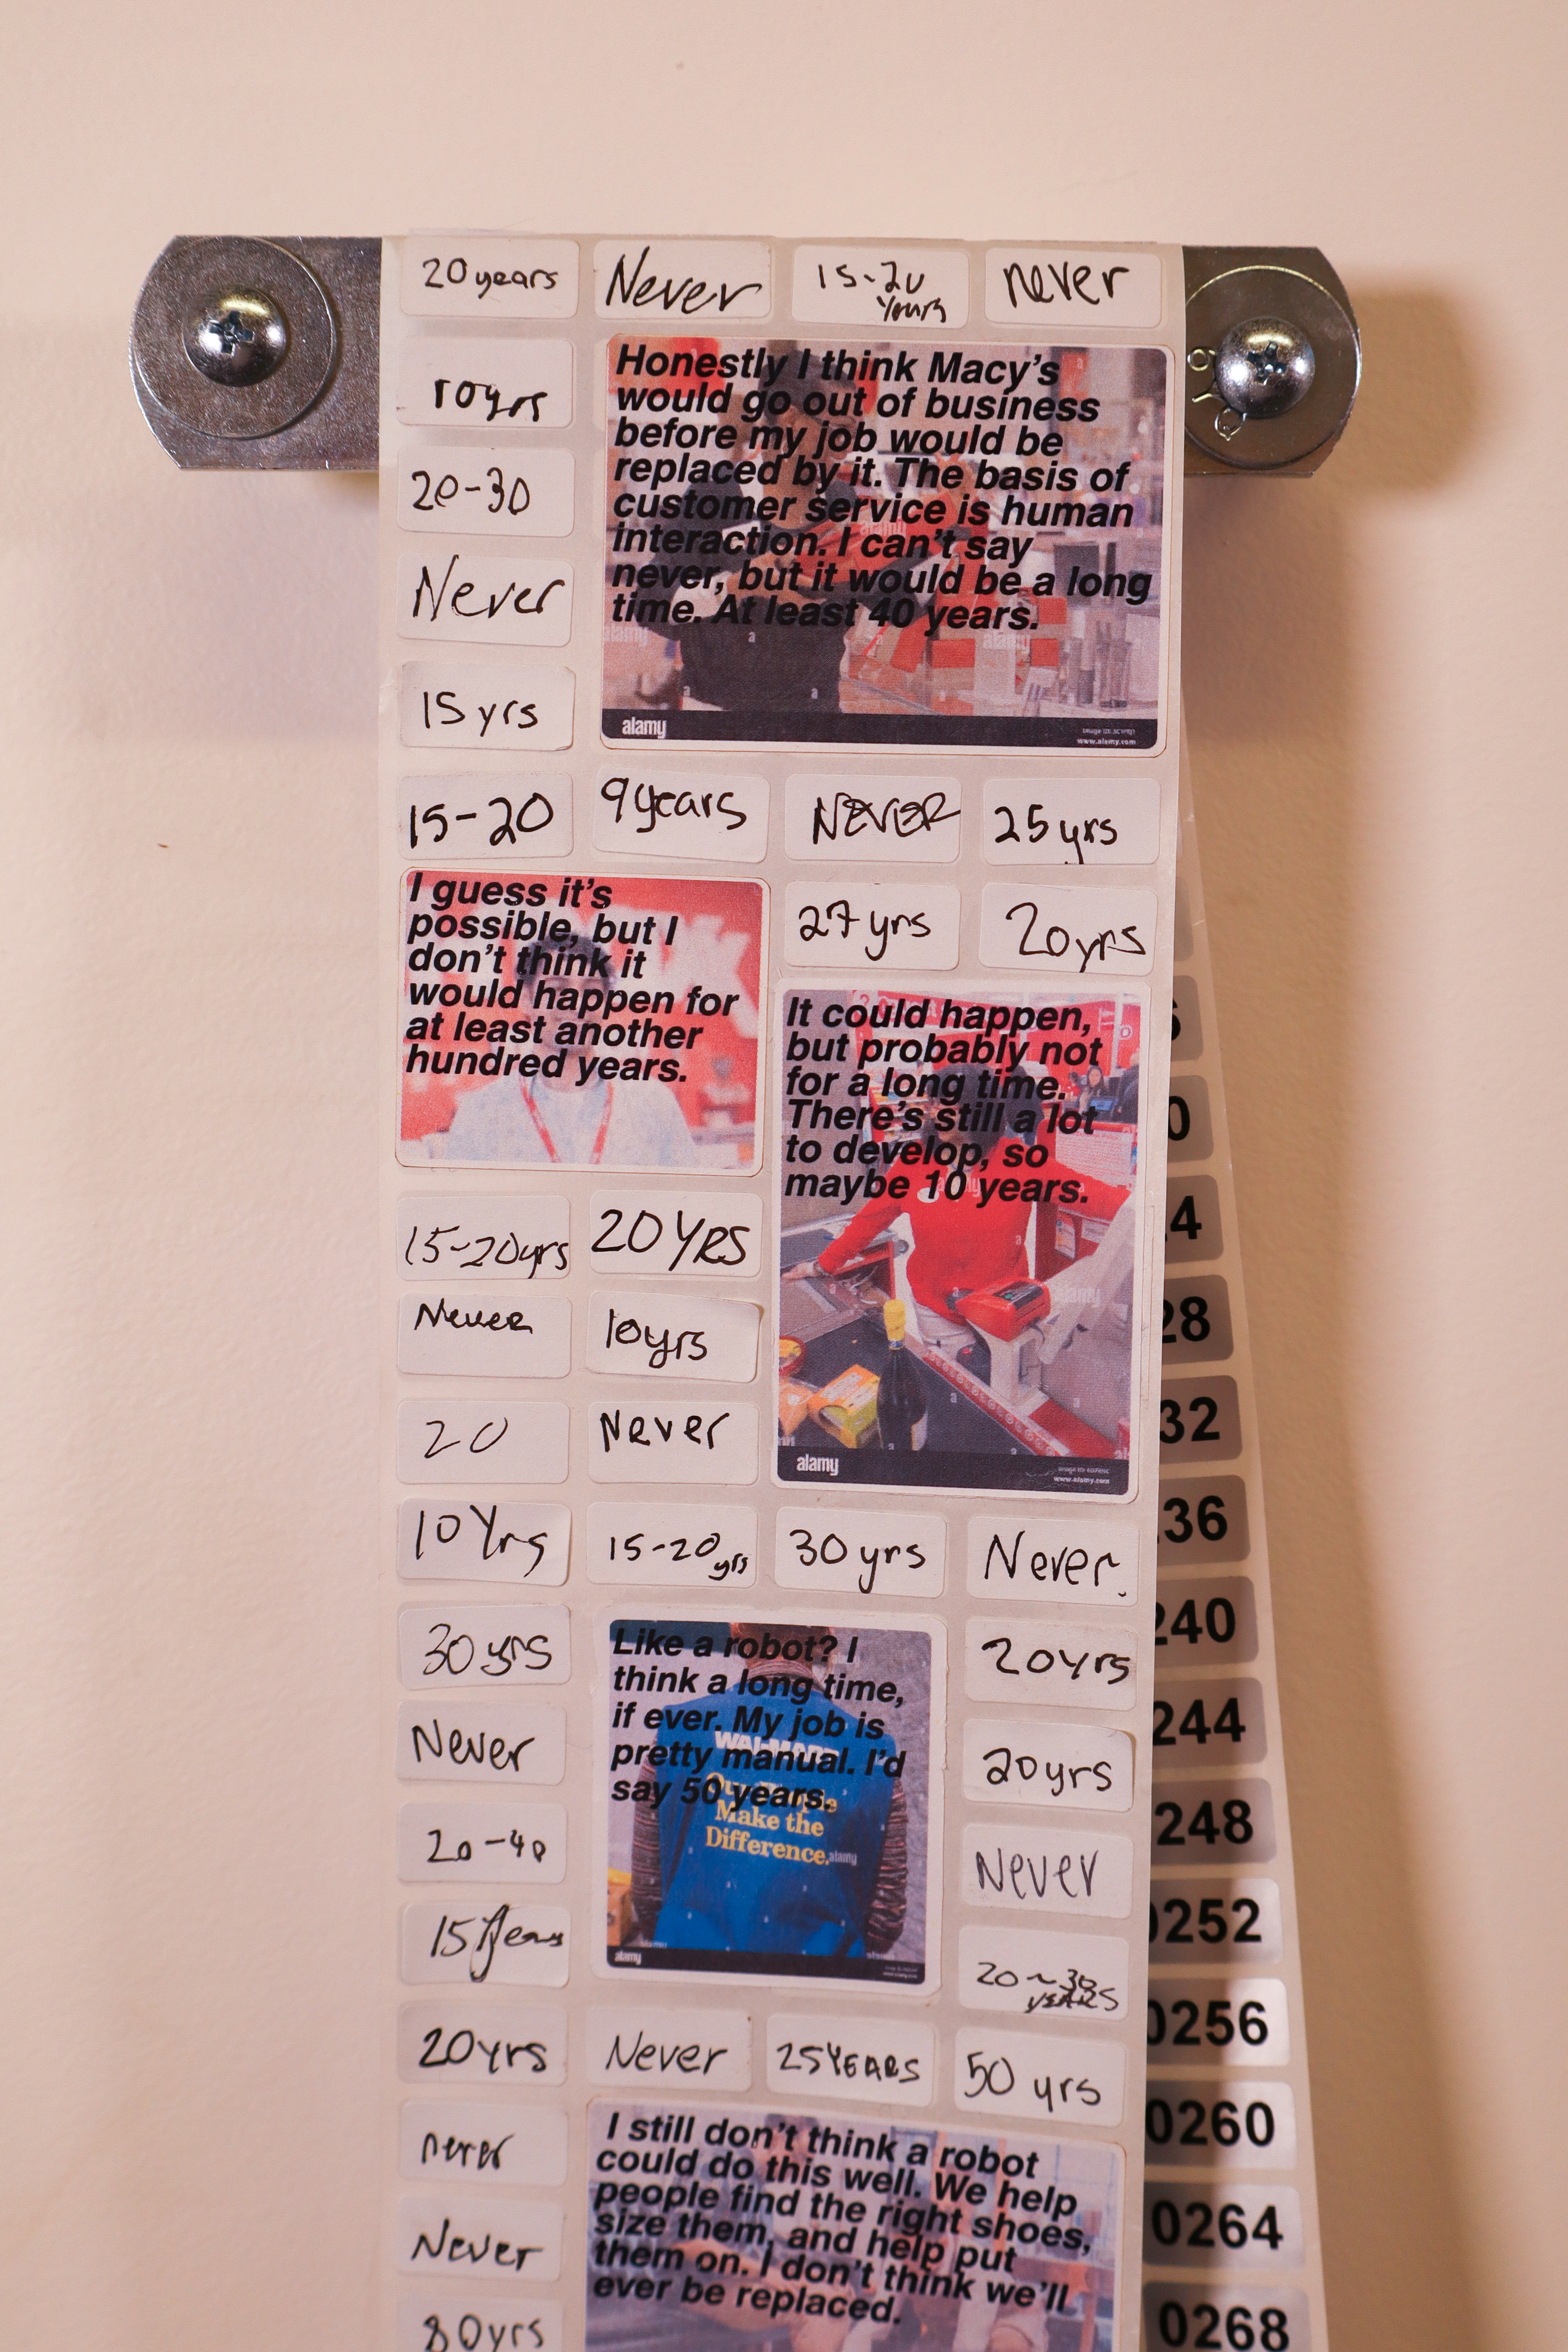 20 years
Never
15-20
years
never
10yrs
20-30
Never
15 yrs
Honestly I think Macy's
would go out of business
before my job would be
replaced by it. The basis of
customer service is human
interaction. I can't say
never, but it would be a long
time. At least 40 years.
alamy
www.alamy.com
15-20
9 years
NEVER
25 yrs
27 yrs
20yrs
I guess it's
possible, but I
don't think it
would happen for
at least another
hundred years.
It could happen,
but probably not
for a long time.
There's still a lot
to develop, so
maybe 10 years.
alamy
www.alamy.com
15-20yrs
20 YRS
Never
10yrs
20
Never
10 Yrs
15-20 yrs
30 yrs
Never.
30 yrs
Never
20-40
15 Years
Like a robot? I
think a long time,
if ever. My job is
pretty manual. I'd
say 50 years.
WAL-MART
Our People
Make the
Difference.
alamy
20yrs
20yrs
Never
20~30
YEARS
20yrs
Never
25 YEARS
50 yrs
never
Never
80yrs
I still don't think a robot
could do this well. We help
people find the right shoes,
size them, and help put
them on. I don't think we'll
ever be replaced.
28
32
36
240
244
248
0252
0256
0260
0264
0268